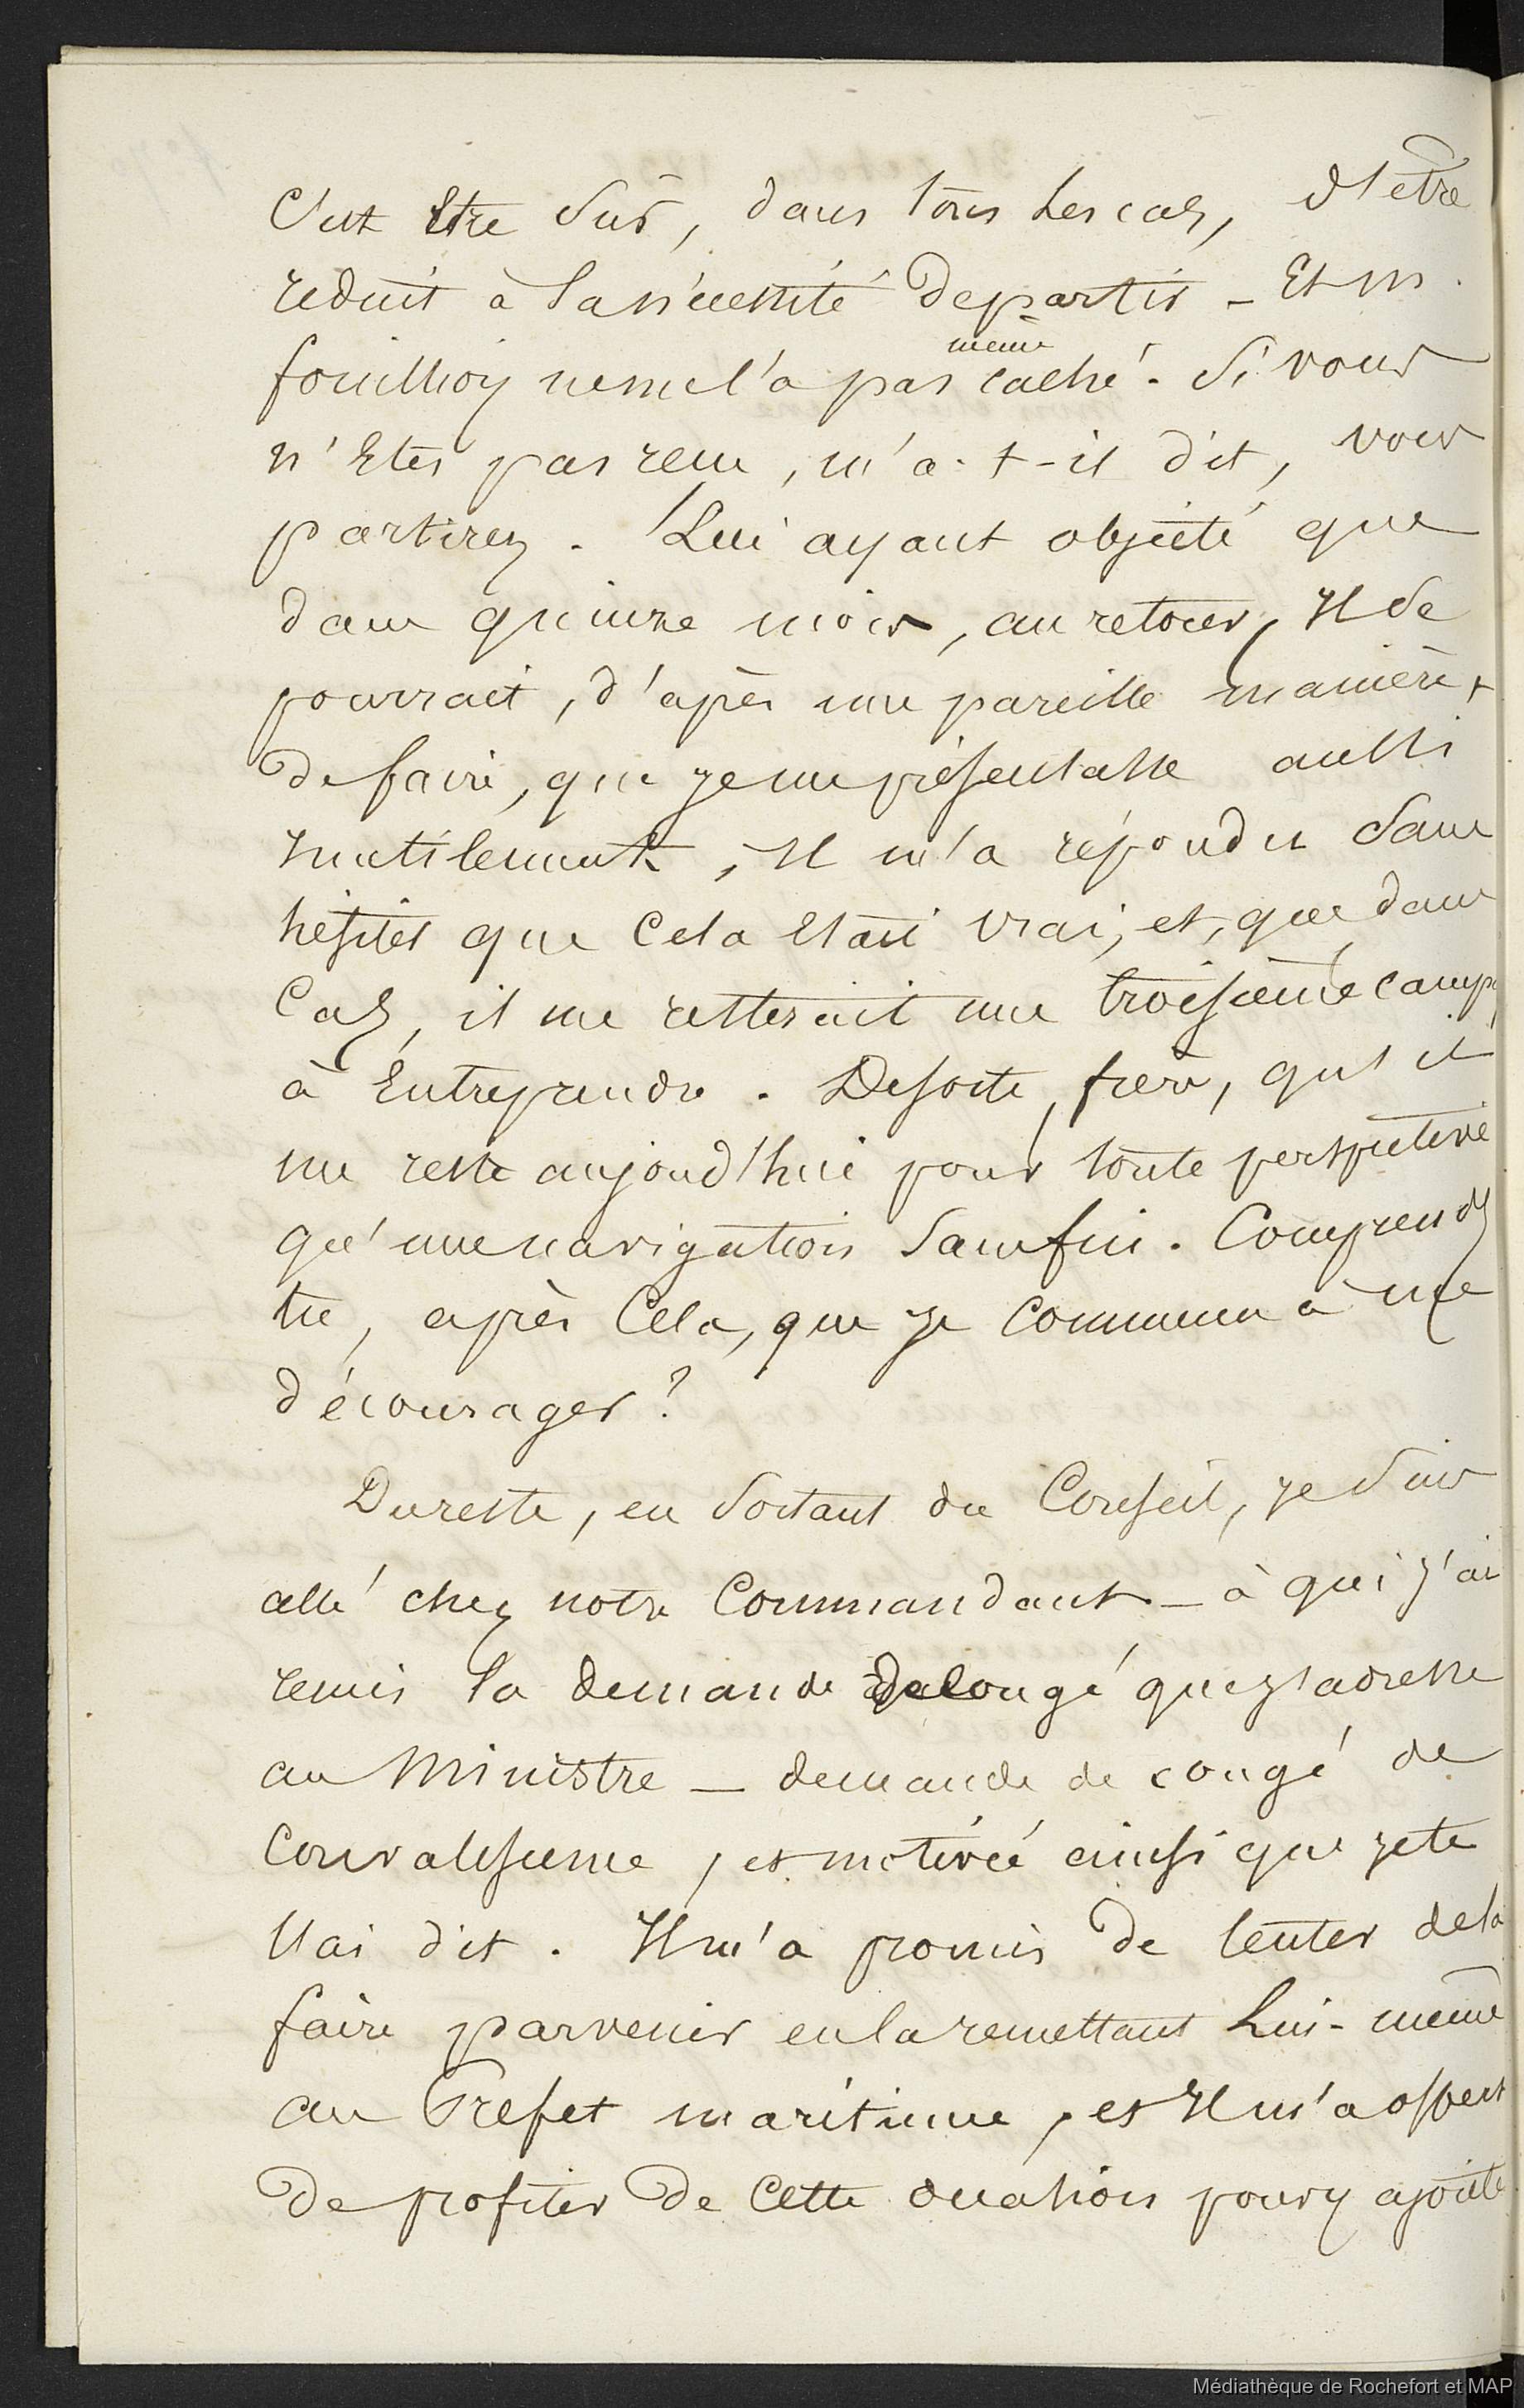 C'est être sûr, dans tous les cas, d'être
reduit à la nécessité de partir _ Et M.
fouillioy ne me l'a pas même caché. Si vous
n'êtes pas reçu, m'a-t-il dit, vous
partirez. Lui ayant objecté que
dans quinze mois, au retour, il se
pourrait, d'après une pareille manière
de faire, que je me présentasse aussi
inutilement, il m'a répondu sans
hésiter que cela était vrai, et, que dans
cas, il me resterait une troisième camp
à entreprendre. De sorte, frère, qu'il
me reste aujourd'hui pour toute perspective
qu'une navigation sans fin. Comprends
tu, après cela, que je commence à me
décourager?
Du reste, en sortant du Conseil, je suis
allé chez notre Commandant _ à qui j'ai
remis la demande de congé que j'adresse
au Ministre _ demande de congé de
convalescence, et motivée ainsi que je te
l'ai dit. Il m'a promis de tenter de la
faire parvenir en la remettant lui-même
au Préfet maritime, et il m'a offert
de profiter de cette occasion pour y ajoute
Médiathèque de Rochefort et MAP